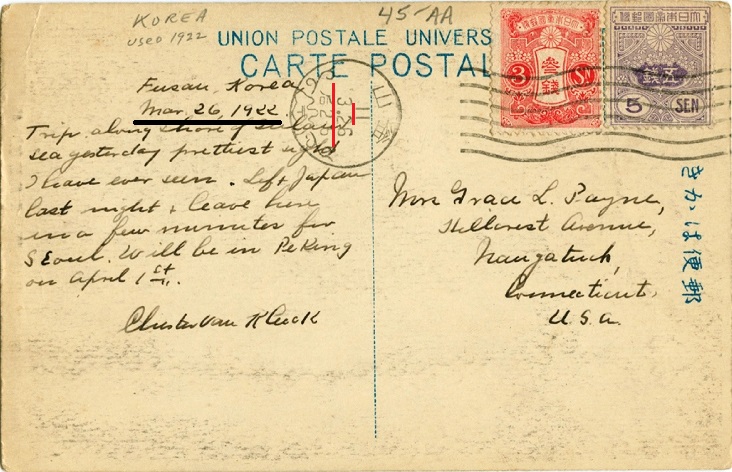 KOREA
USED 1922
45-AA
UNION POSTALE UNIVERS
CARTE POSTAL
3 SN
参銭
5 SEN
五銭
Fusan, Korea
Mar, 26, 1922
Trip along shore of Inland
sea yesterday prettiest sight
I have ever seen. Left Japan
last night & leave here
in a few minutes for
Seoul. Will be in Peking
on April 1st.
Chester Van Kleeck
Mrs Grace L. Payne,
Hillcrest Avenue,
Naugatuck,
Connecticut,
U.S.A.
きかは便郵